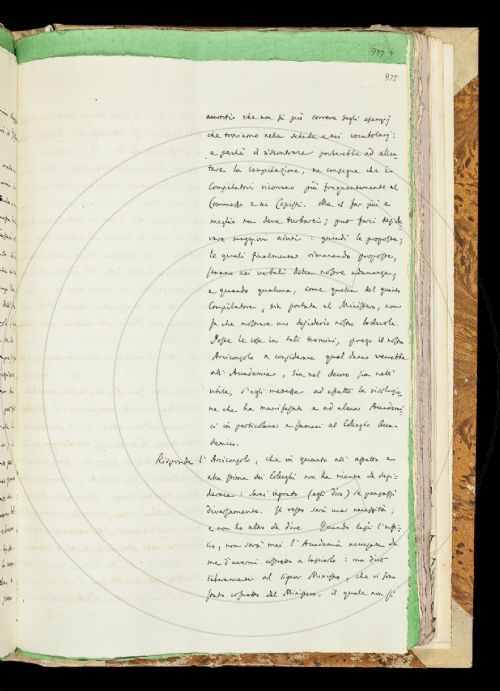 937
935
accordo che non si può correre dagli esempj
che troviamo nelle schede e nei vocabolarj:
e perchè il riscontrare porterebbe ad allen-
tare la compilazione, ne consegue che i
Compilatori ricorrano più frequentemente al
Commesso e ai Copisti. Ma il far più e
meglio non deve turbarci; può farci deside-
rare maggiori aiuti: quindi le proposte,
le quali finalmente rimanendo proposte,
stanno nei verbali delle nostre adunanze;
e quando qualcuna, come quella del quarto
Compilatore, sia portata al Ministero, non
fa che mostrare un desiderio nostro lodevole.
Poste le cose in tali termini, prego il nostro
Arciconsolo a considerare qual danno verrebbe
all'Accademia, sia nel decoro sia nell'
utile, s'egli mettesse ad effetto la risoluzio-
ne che ha manifestato e ad alcuni Accademi-
ci in particolare e innanzi al Collegio Acca-
demico.
Risponde l'Arciconsolo, che in quanto all'affetto e
alla stima dei Colleghi non ha niente da desi-
derare: sarei ingrato (egli dice) se pensassi
diversamente. Il resto sarà una necessità;
e non ho altro da dire. Quando lasci l'uffi-
cio, non sarà mai l'Accademia accusata da
me d'avermi costretto a lasciarlo: ma dirò
liberamente al signor Ministro, che vi sono
stato costretto dal Ministero, il quale non si